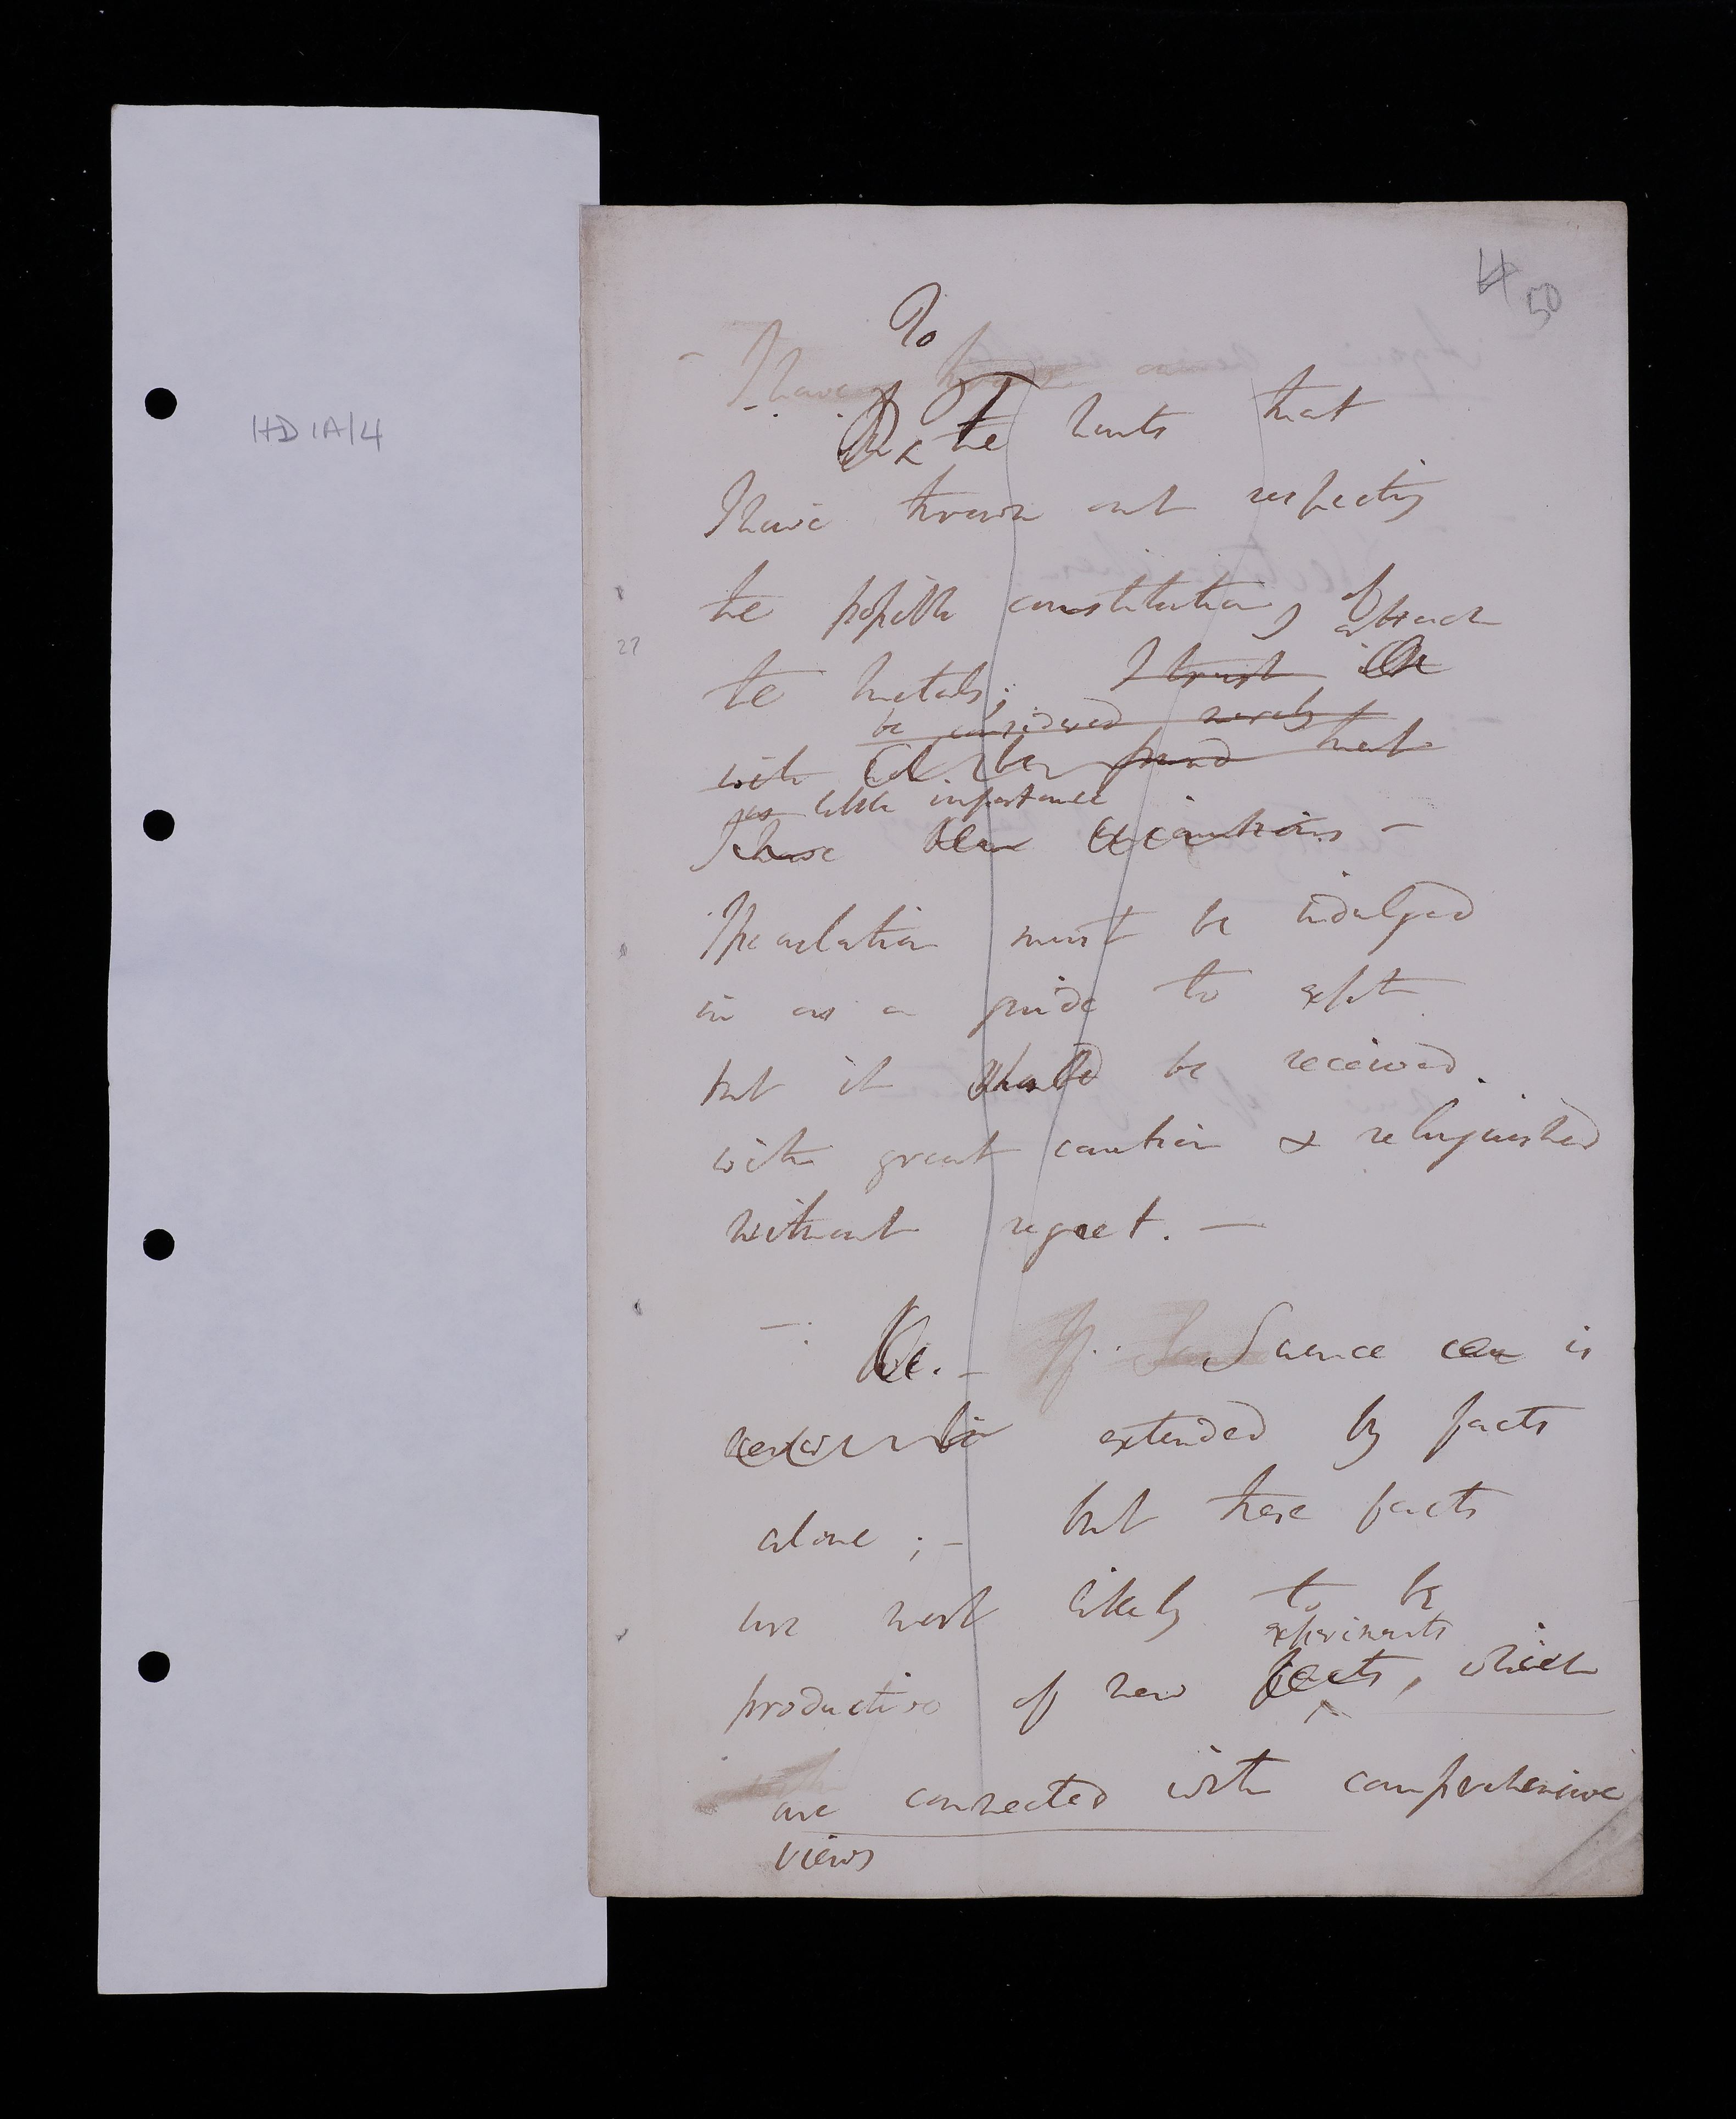 HD 1A/4
4 50
To
I have
the hints that
I have thrown out respecting
the possible constitution, of
attach
27
the metals; I trust
be considered merely
with be found that
little importance
I have been cautious –
Speculation must be indulged
in as a guide to expt
but it should be received.
with great caution & relinquished
without regret. —
Science can is
extended by facts
alone ; – but these facts
are most likely to be
experiments
productive of new facts, which
are connected with comprehensive
views